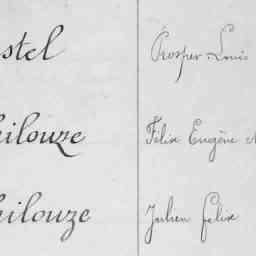 stel Prosper Louis
hilouze Félix Eugène
hilouze Julien Felix